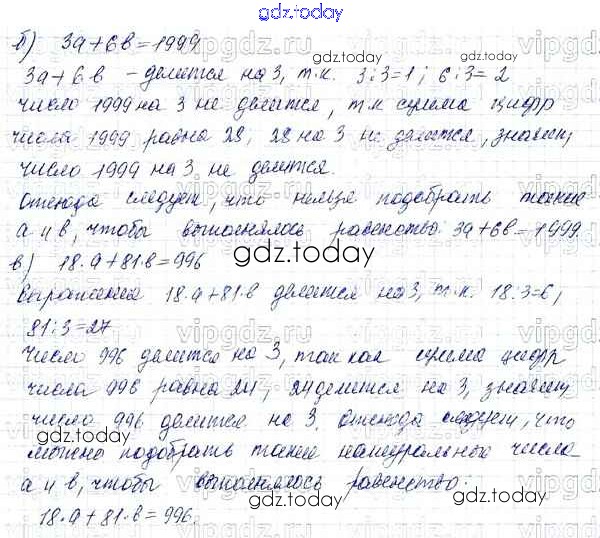 gdz.today
б) 3а+6в=1999
3а+6в - делится на 3, т.к. 3:3=1; 6:3=2
число 1999 на 3 не делится, т.к сумма цифр
числа 1999 равна 28, 28 на 3 не делится, значит,
число 1999 на 3 не делится.
Отсюда следует, что нельзя подобрать такие
а и в, чтобы выполнялось равенство 3а+6в=1999
в) 18·а+81·в=996
Выражение 18·а+81·в делится на 3, т.к. 18:3=6,
81:3=27
Число 996 делится на 3, так как сумма цифр
числа 996 равна 24, 24 делится на 3, значит
число 996 делится на 3. Отсюда следует, что
можно подобрать такие натуральные числа
а и в, чтобы выполнялось равенство:
18·а+81·в=996.